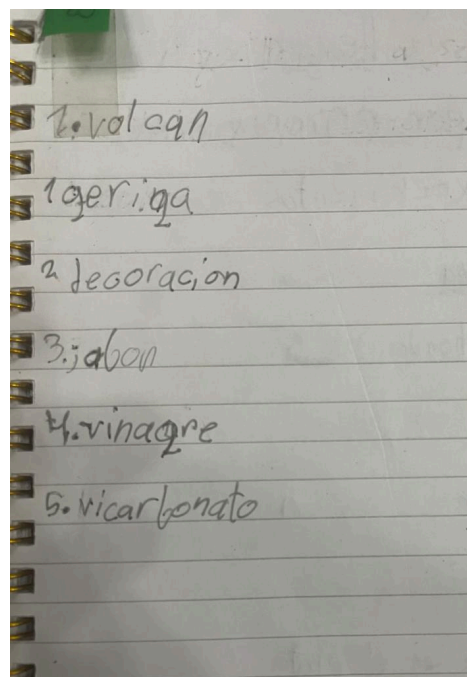 1.volcan
1geriga
2 decoracion
3.jabon
4.vinagre
5.vicarbonato